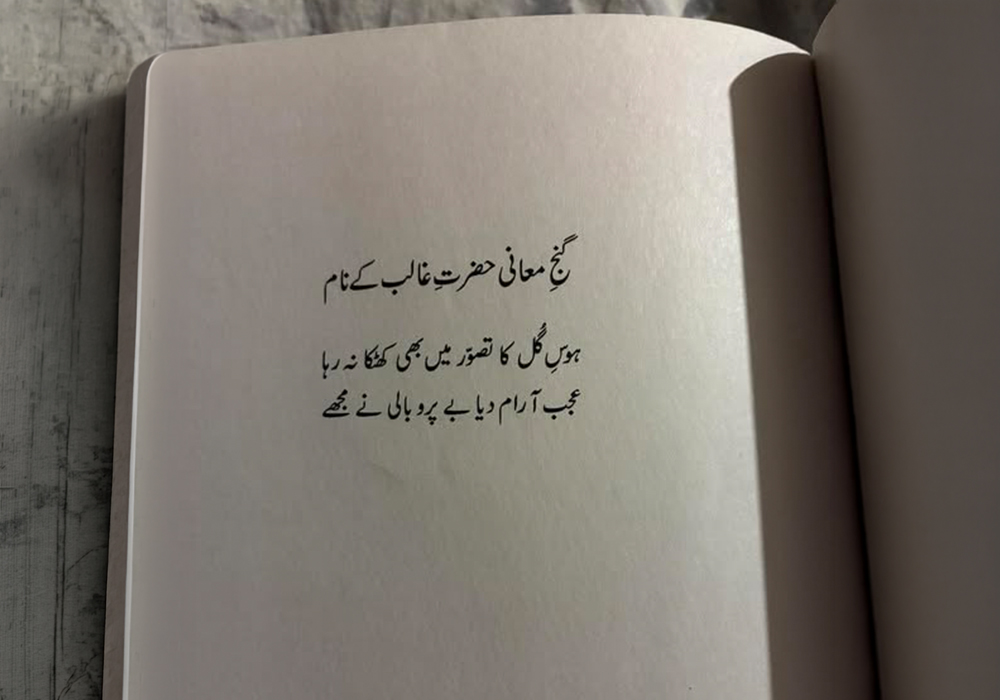 گنجِ معانی حضرتِ غالب کے نام
ہوسِ گُل کا تصوّر میں بھی کھٹکا نہ رہا
عجب آرام دیا بے پر و بالی نے مجھے